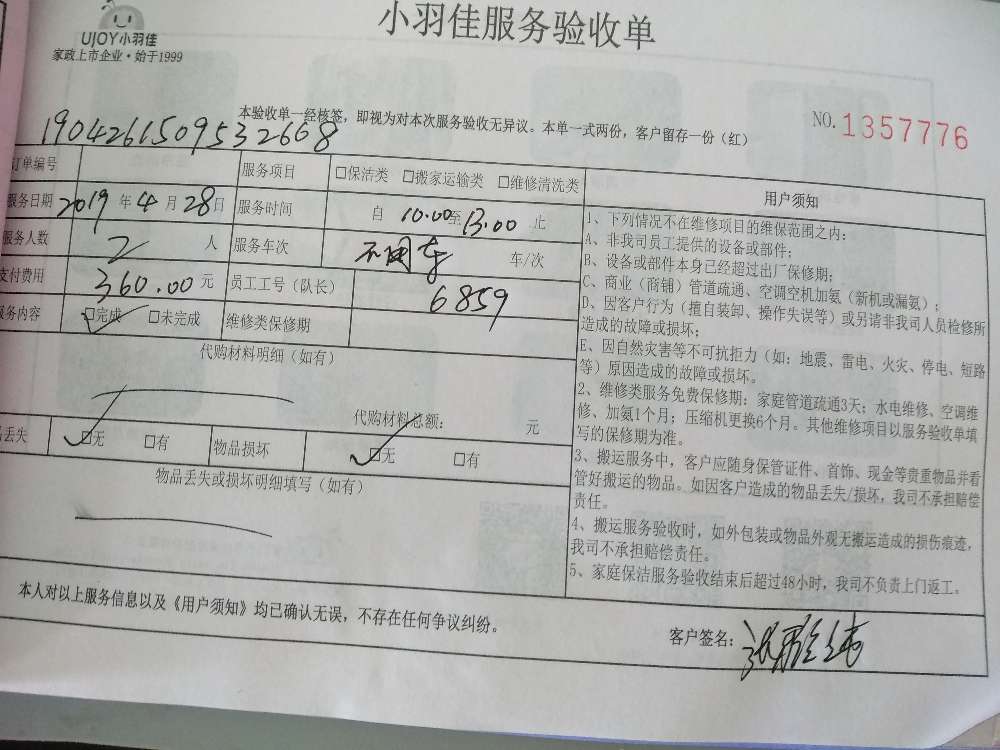 UJOY小羽佳
家政上市企业·始于1999
小羽佳服务验收单
本验收单一经核签，即视为对本次服务验收无异议。本单一式两份，客户留存一份（红）
NO.1357776
1904261509532668
订单编号
服务项目 □保洁类 □搬家运输类 □维修清洗类
服务日期 2019年4月28日 服务时间 自 10.00至13.00止
服务人数 2 人 服务车次 不用车 车/次
支付费用 360.00元 员工工号（队长） 6859
服务内容 □完成 □未完成 维修类保修期
代购材料明细（如有）
代购材料总额： 元
丢失 □无 □有 物品损坏 □无 □有
物品丢失或损坏明细填写（如有）
用户须知
1、下列情况不在维修项目的维保范围之内：
A、非我司员工提供的设备或部件；
B、设备或部件本身已经超过出厂保修期；
C、商业（商铺）管道疏通、空调空机加氨（新机或漏氨）；
D、因客户行为（擅自装卸、操作失误等）或另请非我司人员检修所
造成的故障或损坏；
E、因自然灾害等不可抗拒力（如：地震、雷电、火灾、停电、短路
等）原因造成的故障或损坏。
2、维修类服务免费保修期：家庭管道疏通3天；水电维修、空调维
修、加氨1个月；压缩机更换6个月。其他维修项目以服务验收单填
写的保修期为准。
3、搬运服务中，客户应随身保管证件、首饰、现金等贵重物品并看
管好搬运的物品。如因客户造成的物品丢失/损坏，我司不承担赔偿
责任。
4、搬运服务验收时，如外包装或物品外观无搬运造成的损伤痕迹，
我司不承担赔偿责任。
5、家庭保洁服务验收结束后超过48小时，我司不负责上门返工。
本人对以上服务信息以及《用户须知》均已确认无误，不存在任何争议纠纷。
客户签名：